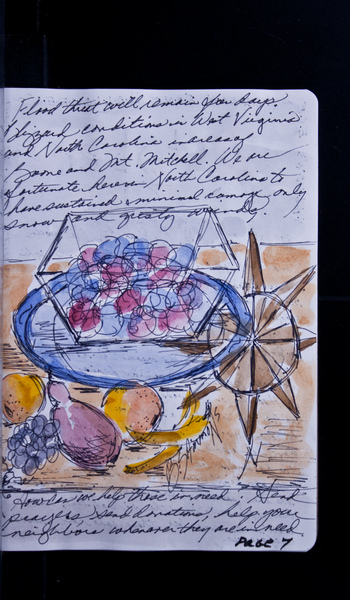 Flood threat will remain for days.
Blizzard conditions in West Virginia
and North Carolina in areas of
Boone and Mt. Mitchell. We are
fortunate here in North Carolina to
have sustained minimal damage only
snow and gusty winds.
How can we help those in need? Send
prayers, send donations, help your
neighbors whenever they are in need.
PAGE 7